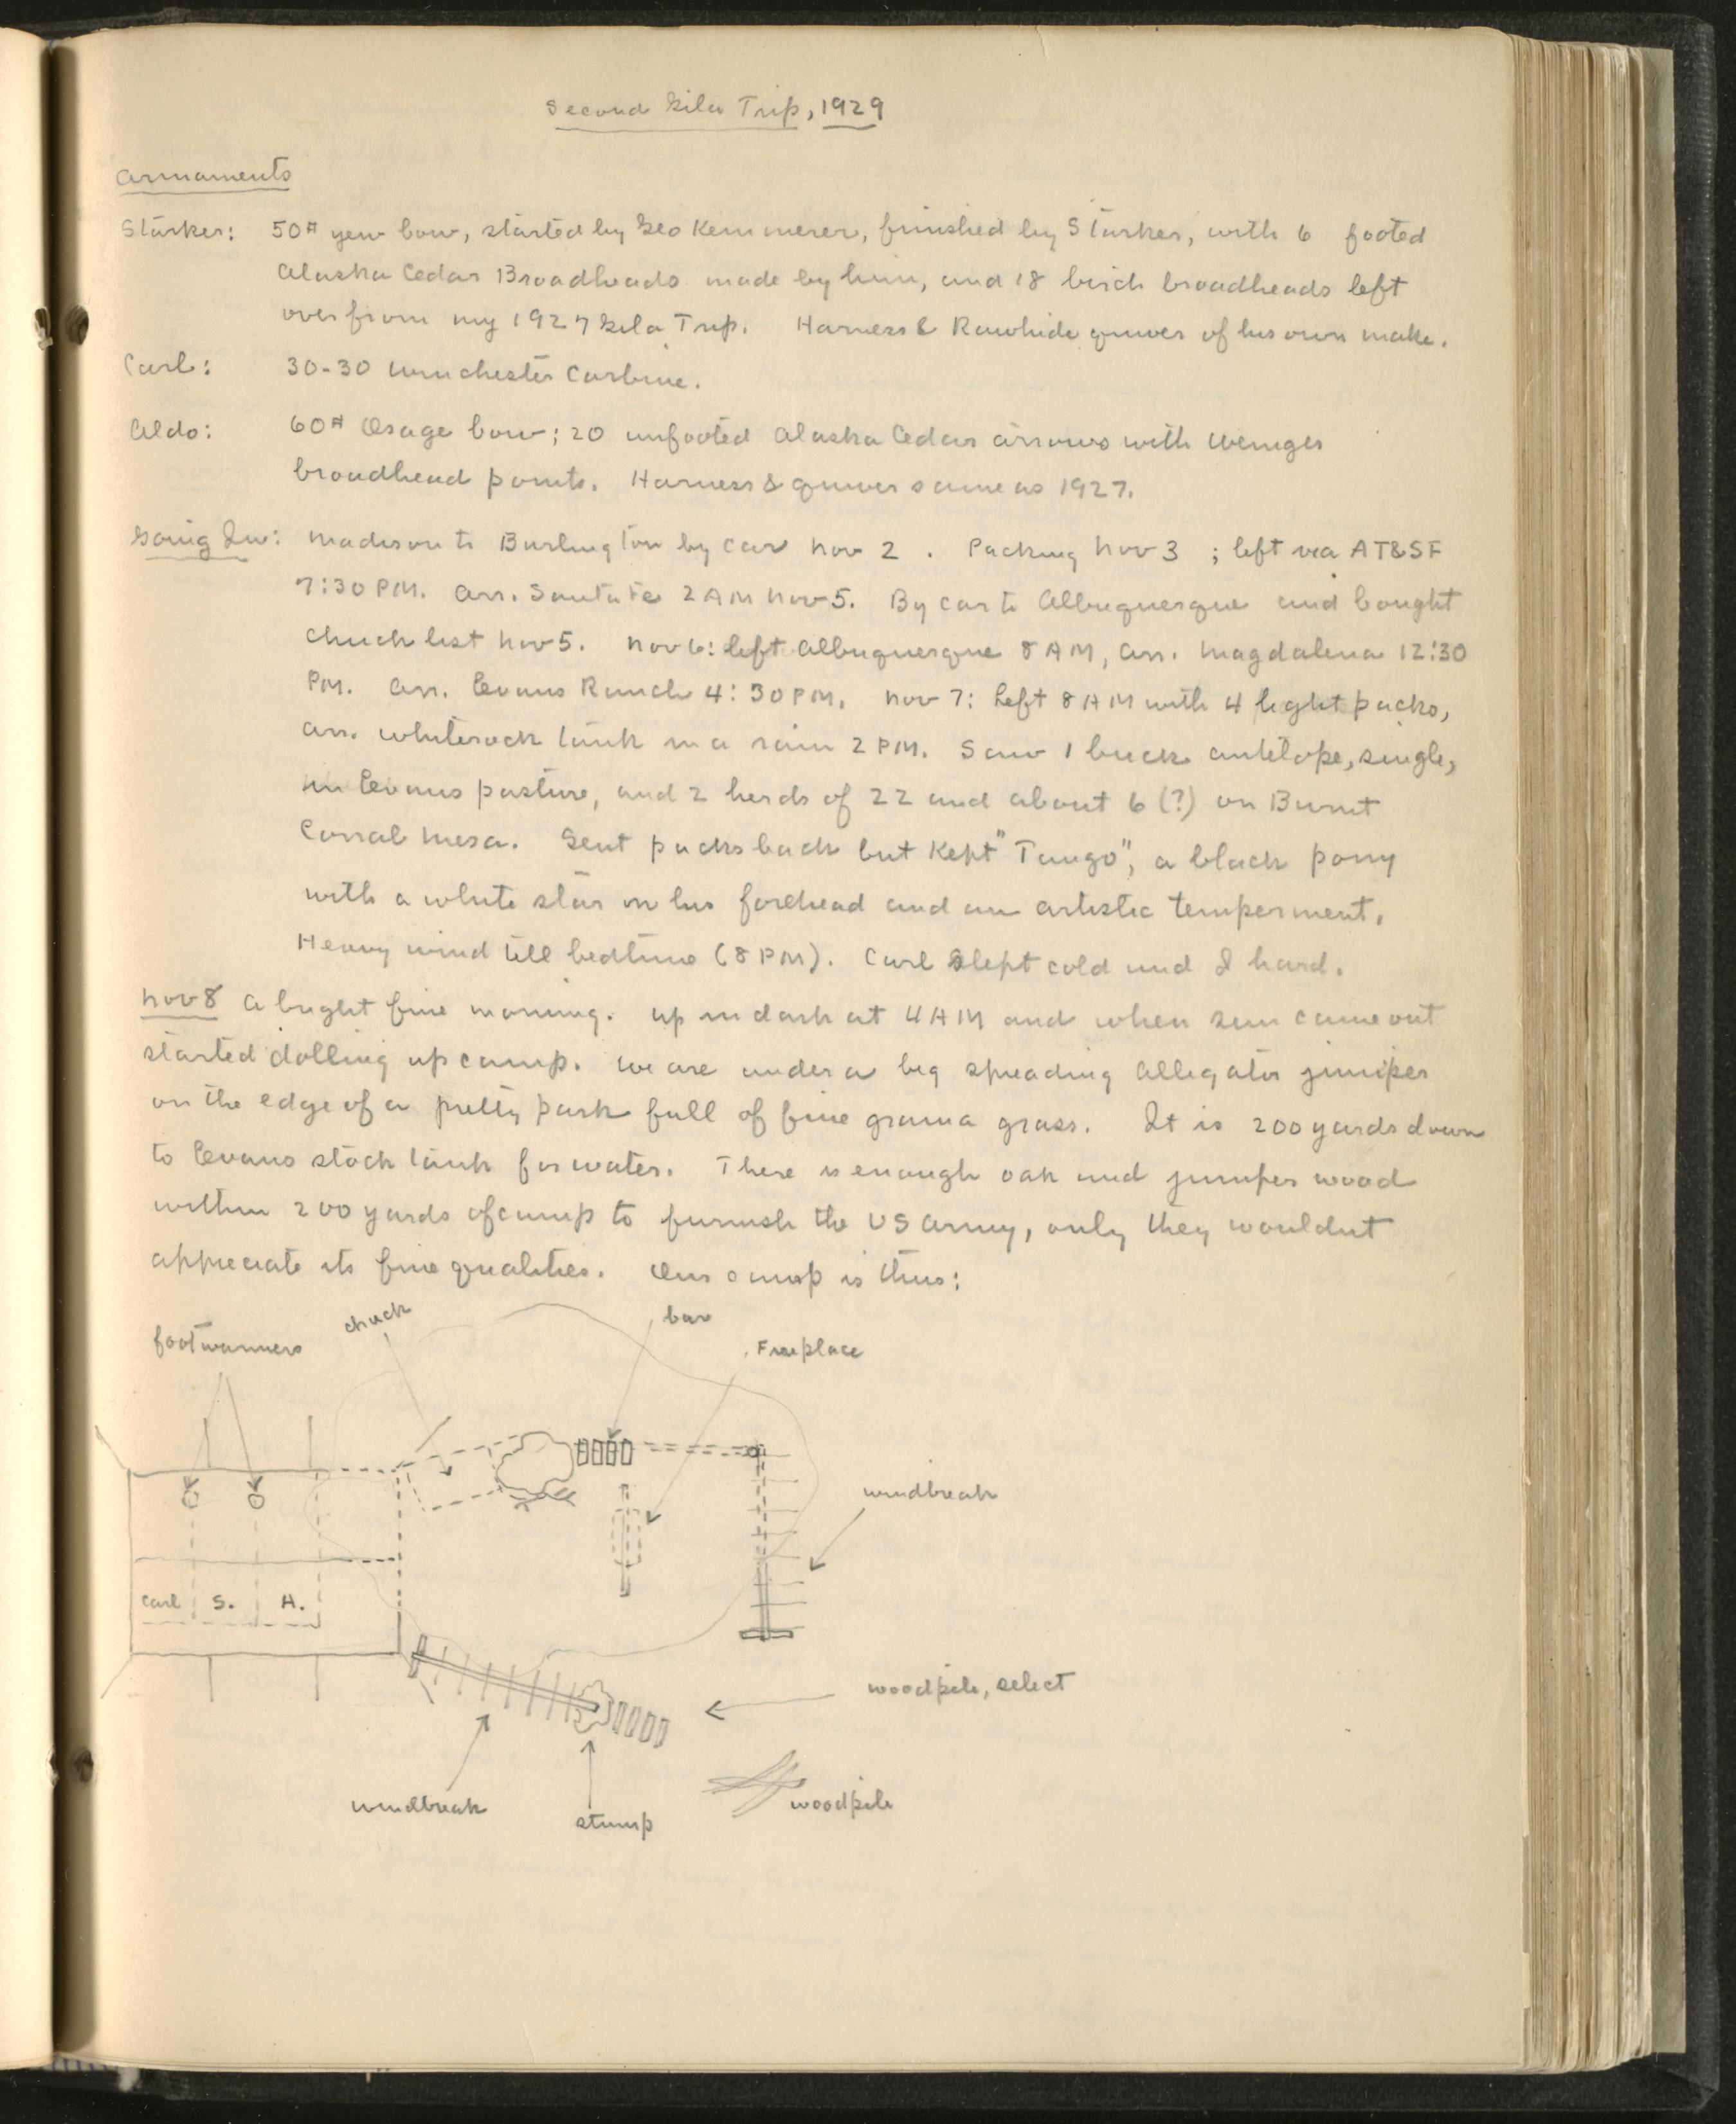 Second Gila Trip, 1929
Armaments
Starker: 50# yew bow, started by Geo Kemmerer, finished by Starker, with 6 footed
Alaska Cedar Broadheads made by him, and 18 birch broadheads left
over from my 1927 Gila Trip. Harness & Rawhide quiver of his own make.
Carl: 30-30 Winchester Carbine.
Aldo: 60# Osage bow; 20 unfooted Alaska Cedar arrows with Weniger
broadhead points. Harness & quiver same as 1927.
Going In: Madison to Burlington by car Nov 2. Packing Nov 3; left via AT&SF
7:30 PM. Arr. Santa Fe 2 AM Nov 5. By car to Albuquerque and bought
chuck list Nov 5. Nov 6: left Albuquerque 8 AM, arr. Magdalena 12:30
PM. Arr. Evans Ranch 4:30 PM. Nov 7: Left 8 AM with 4 light packs,
arr. whiterock tank in a rain 2 PM. Saw 1 buck antelope, single,
in Evans pasture, and 2 herds of 22 and about 6 (?) on Burnt
Corral Mesa. Sent packs back but kept "Tango", a black pony
with a white star on his forehead and an artistic temperment.
Heavy wind till bedtime (8 PM). Carl slept cold and I hard.
Nov 8 A bright fine morning. Up in dark at 4 AM and when sun came out
started dolling up camp. We are under a big spreading alligator juniper
on the edge of a pretty park full of fine grama grass. It is 200 yards down
to Evans stock tank for water. There is enough oak and juniper wood
within 200 yards of camp to furnish the US Army, only they wouldnt
appreciate its fine qualities. Our camp is thus:
footwarmers
chuck
bar
Fireplace
windbreak
Carl S. A.
woodpile, select
windbreak
stump
woodpile